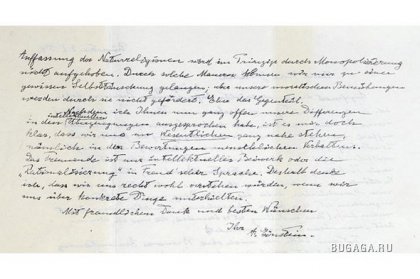 Auffassung der Naturreligionen wird im Prinzip durch Monopolisierung
nicht aufgehoben. Durch solche Mauern können wir nur zu einer
gewissen Selbsttäuschung gelangen; aber unsere moralischen Bemühungen
werden durch sie nicht gefördert. Eher das Gegenteil.
Nachdem ich Ihnen nun ganz offen unsere Differenzen
in den intellektuellen Überzeugungen ausgesprochen habe, ist es mir doch
klar, dass wir uns im Wesentlichen ganz nahe stehen,
nämlich in den Bewertungen menschlichen Verhaltens.
Das Trennende ist nur intellektuelles Beiwerk oder die
"Rationalisierung" in Freud'scher Sprache. Deshalb denke
ich, dass wir uns recht wohl verstehen würden, wenn wir
uns über konkrete Dinge unterhielten.
Mit freundlichem Dank und besten Wünschen
Ihr
A. Einstein.
BUGAGA.RU